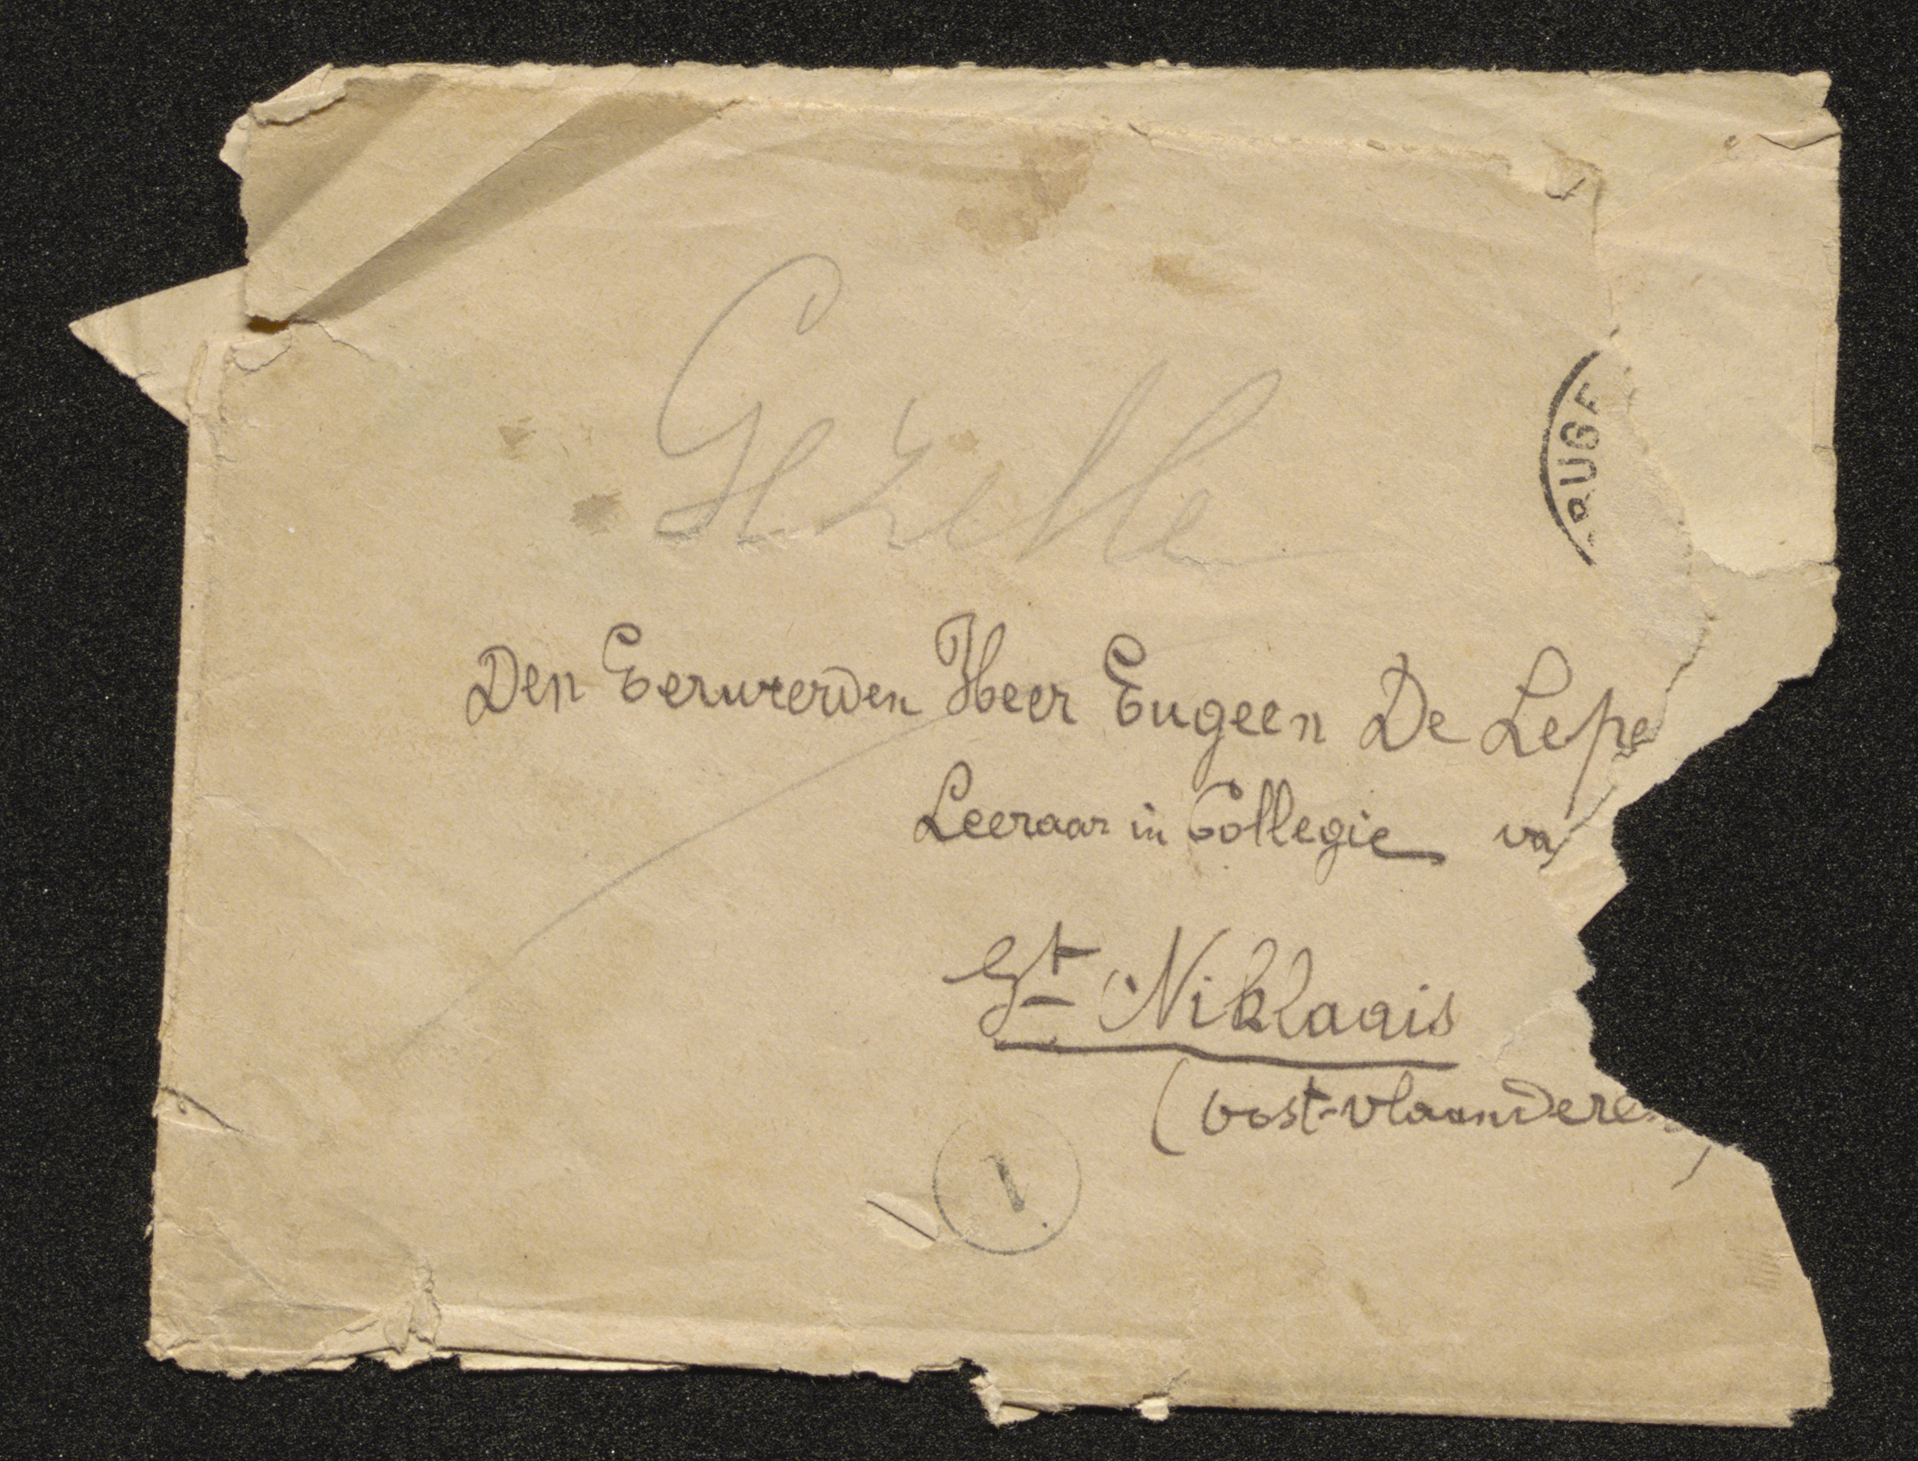 Gezelle
BRUGE
Den Eerweerden Heer Eugeen De Lepe
Leeraar in Collegie va
St Niklaais
(Oost-Vlaanderen)
1